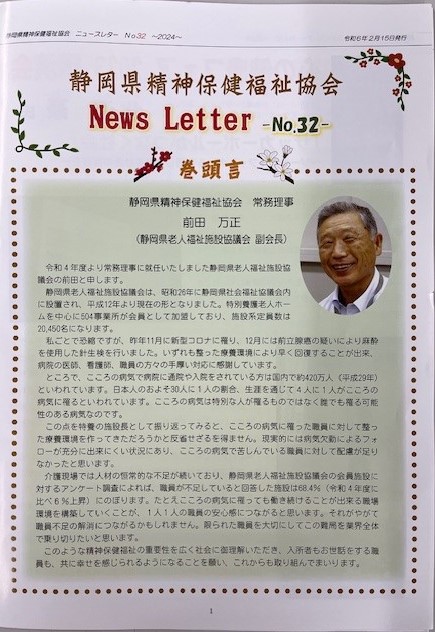 静岡県精神保健福祉協会 ニュースレター No32 ～2024～
令和6年2月15日発行
静岡県精神保健福祉協会
News Letter -No.32-
巻頭言
静岡県精神保健福祉協会 常務理事
前田 万正
(静岡県老人福祉施設協議会 副会長)
令和4年度より常務理事に就任いたしました静岡県老人福祉施設協
議会の前田と申します。
静岡県老人福祉施設協議会は、昭和26年に静岡県社会福祉協議会内
に設置され、平成12年より現在の形となりました。特別養護老人ホー
ムを中心に504事業所が会員として加盟しており、施設系定員数は
20,450名になります。
私ごとで恐縮ですが、昨年11月に新型コロナに罹り、12月には前立腺癌の疑いにより麻酔
を使用した針生検を行いました。いずれも整った療養環境により早く回復することが出来、
病院の医師、看護師、職員の方々の手厚い対応に感謝しています。
ところで、こころの病気で病院に通院や入院をされている方は国内で約420万人（平成29年）
といわれています。日本人のおよそ30人に1人の割合、生涯を通じて4人に1人がこころの
病気に罹るといわれています。こころの病気は特別な人が罹るものではなく誰でも罹る可能
性のある病気なのです。
この点を特養の施設長として振り返ってみると、こころの病気に罹った職員に対して整っ
た療養環境を作ってきただろうかと反省せざるを得ません。現実的には病気欠勤によるフォ
ローが充分に出来にくい状況にあり、こころの病気で苦しんでいる職員に対して配慮が足り
なかったと思います。
介護現場では人材の恒常的な不足が続いており、静岡県老人福祉施設協議会の会員施設に
対するアンケート調査によれば、職員が不足していると回答した施設は68.4%（令和4年度に
比べ6%上昇）にのぼります。たとえこころの病気に罹っても働き続けることが出来る職場
環境を構築していくことが、1人1人の職員の安心感につながると思います。それがやがて
職員不足の解消につながるかもしれません。限られた職員を大切にしてこの難局を業界全体
で乗り切りたいと思います。
このような精神保健福祉の重要性を広く社会に御理解いただき、入所者もお世話をする職
員も、共に幸せを感じられるようになることを願い、これからも取り組んでまいります。
1